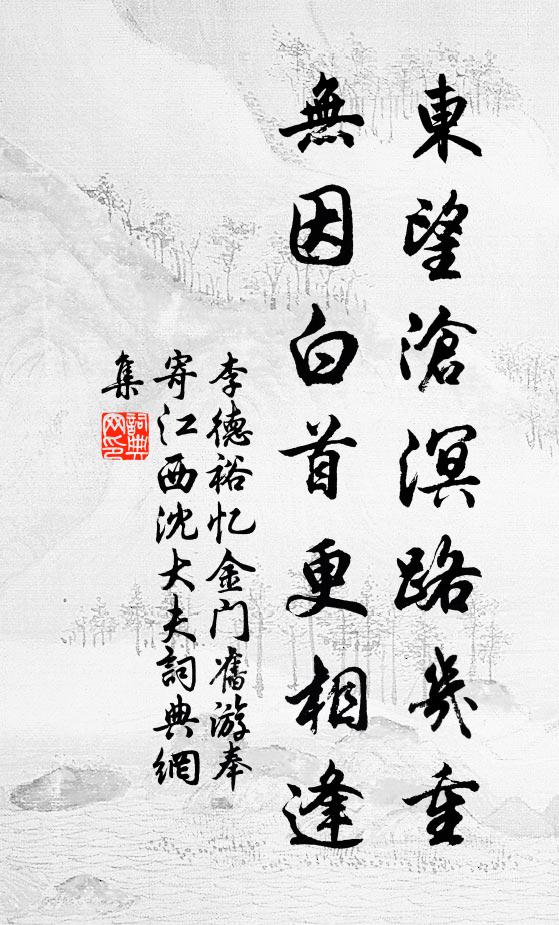 東望滄溟路幾重
無因白首更相逢
李德裕忆金门舊游奉
寄江西沈大夫詞典網
集
詞典
网印